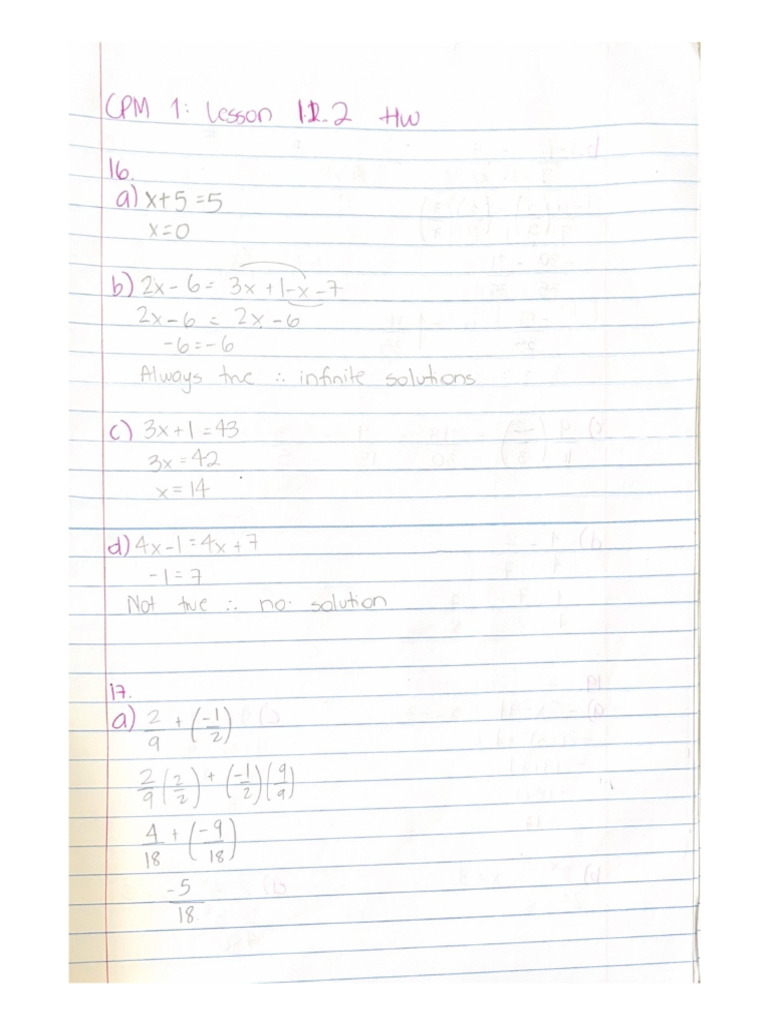 CPM 1: Lesson 1.1.2 HW
16.
a) x+5=5
x=0
b) 2x-6= 3x+1-x-7
2x-6 = 2x-6
-6=-6
Always true ∴ infinite solutions
c) 3x+1=43
3x=42
x=14
d) 4x-1=4x+7
-1=7
Not true ∴ no solution
17.
a) 2/9 + (-1/2)
2/9 (2/2) + (-1/2)(9/9)
4/18 + (-9/18)
-5/18